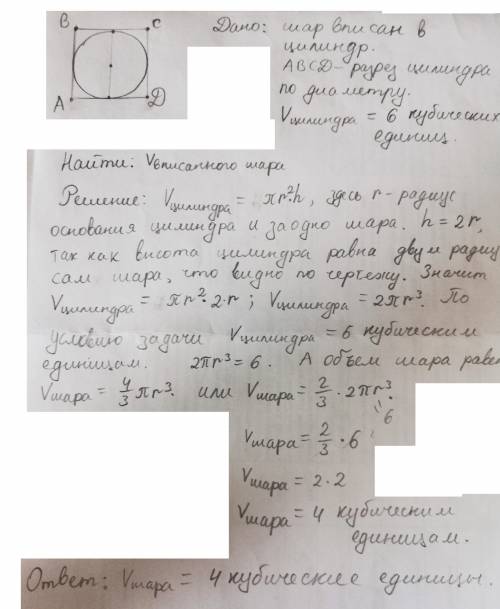 B C Дано: шар вписан в
цилиндр.
ABCD - разрез цилиндра
A D по диаметру.
Vцилиндра = 6 кубических
единиц.
Найти: Vвписанного шара
Решение: Vцилиндра = πr²·h, здесь r - радиус
основания цилиндра и заодно шара. h = 2r,
так как высота цилиндра равна двум радиу
сам шара, что видно по чертежу. Значит
Vцилиндра = πr²·2·r; Vцилиндра = 2πr³. По
условию задачи Vцилиндра = 6 кубическим
единицам. 2πr³ = 6. А объем шара равен
Vшара = 4/3 πr³. или Vшара = 2/3 · 2πr³.
" 6
Vшара = 2/3 · 6
Vшара = 2·2
Vшара = 4 кубическим
единицам.
Ответ: Vшара = 4 кубические единицы.